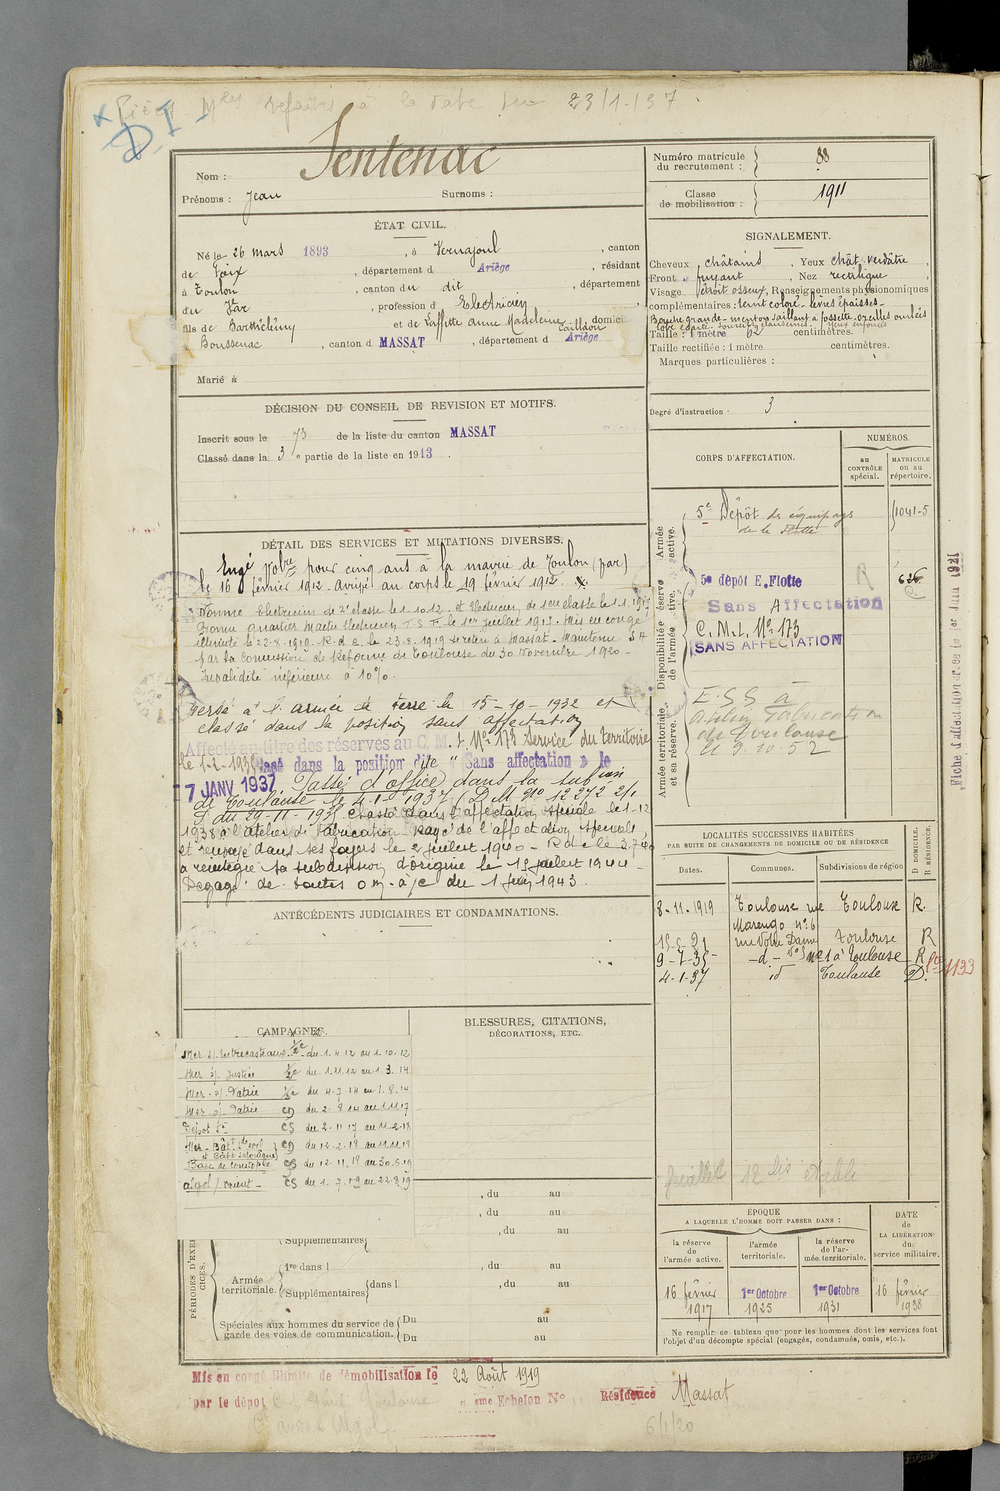 à la date du 23/1-37.
D I
Nom : Sentenac
Prénoms : Jean Surnoms :
Numéro matricule du recrutement : 88
Classe de mobilisation : 1911
ÉTAT CIVIL.
Né le 26 mars 1893, à Vernajoul, canton
de Foix, département d Ariège, résidant
à Toulon, canton du dit, département
du Var, profession d Electricien
fils de Barthélémy et de Laffitte Anne Madeleine, domicil
Boussenac, canton d MASSAT, département d Ariège
Marié à
SIGNALEMENT.
Cheveux châtains. Yeux chât. verdâtre
Front fuyant. Nez rectiligne
Visage étroit osseux, Renseignements physionomiques
complémentaires : teint coloré - lèvres épaisses -
Bouche grande - menton saillant à fossette - oreilles ourlées
Taille : 1 mètre 62 centimètres.
Taille rectifiée : 1 mètre centimètres.
Marques particulières :
Degré d'instruction : 3
DÉCISION DU CONSEIL DE REVISION ET MOTIFS.
Inscrit sous le 73 de la liste du canton MASSAT
Classé dans la 3e partie de la liste en 1913.
CORPS D'AFFECTATION.
NUMÉROS
au CONTRÔLE spécial.
MATRICULE ou au répertoire.
Armée active.
5e Dépôt des équipages
de la Flotte
1041-5
Disponibilité et réserve de l'armée active.
5e dépôt E. Flotte
R
626
Sans Affectation
C.M.I. No 173
SANS AFFECTATION
Armée territoriale et sa réserve.
E.S.S à
de Toulouse
Fiche d'affectation
DÉTAIL DES SERVICES ET MUTATIONS DIVERSES.
Engé Volre pour cinq ans à la mairie de Toulon (Var)
le 16 février 1912. Arrivé au corps le 19 février 1912.
Nommé Electricien de 2e classe le 1-10-12. et Electricien de 1ere classe le 1-1-
Promu quartier Maître Electricien T S F le 1er juillet 191 . Mis en congé
illimité le 22-8-1919. R.d.c. le 23.8.1919 se retire à Massat. Maintenu S A
par la Commission de Réforme de Toulouse du 30 Novembre 1920 -
Invalidité inférieure à 10%.
Versé à l'armée de terre le 15-10-1932 et
classé dans la position sans affectation
Affecté au titre des réserves au C.M.I. No 173 service du territoire
le 1-1-193 dans la position dite " Sans affectation " le
7 JANV 1937 Passé d'office dans la subon
de Toulouse le 4-1-1937 (D.M. no 12272 2/1
du 29-11-193 Classé dans l'affectation spéciale le 1-12
1938 à l'atelier de Fabrication Rayé de l'affectation spéciale
et renvoyé dans ses foyers le 2 juillet 1940 - Rdc le 3.7.40
a réintégré sa subdivision d'origine le 15 juillet 1940 -
Dégagé de toutes o.m. a/c du 1 Juin 1943.
LOCALITÉS SUCCESSIVES HABITÉES
PAR SUITE DE CHANGEMENTS DE DOMICILE OU DE RÉSIDENCE
Dates. Communes. Subdivisions de région
D DOMICILE. R RÉSIDENCE.
8-11-1919 Toulouse rue Marengo no 6 Toulouse R.
rue Notre Dame Toulouse R
9-7-35 -d- no 1 à Toulouse R
4-1-37 id Toulouse D.
1133
ANTÉCÉDENTS JUDICIAIRES ET CONDAMNATIONS.
CAMPAGNES.
Mer s/ Entrecasteaux 1/2c du 1.4.12 au 1.10.12
Mer s/ Justice 1/2c du 1.11.12 au 1.3.14
Mer s/ Patrie 1/2c du 4.7.14 au 1.8.14
Mer s/ Patrie CD du 2.8.14 au 1.11.17
Dépôt CS du 2.11.17 au 11.2.18
Mer - Bât CD du 12.2.18 au 11.11.18
Base de Constople CS du 12.11.18 au 30.6.19
Algol / orient - CS du 1.7.19 au 22.8.19
BLESSURES, CITATIONS,
DÉCORATIONS, ETC.
PÉRIODES D'EXERCICES.
, du au
, du au
Supplémentaires , du au
Armée territoriale.
1re dans l , du au
Supplémentaires dans l , du au
Spéciales aux hommes du service de garde des voies de communication.
Du au
Du au
feuillet 12 bis
ÉPOQUE
A LAQUELLE L'HOMME DOIT PASSER DANS :
la réserve de l'armée active.
l'armée territoriale.
la réserve de l'armée territoriale.
DATE de LA LIBÉRATION du service militaire.
16 février 1917
1er Octobre 1925
1er Octobre 1931
16 février 1938
Ne remplir ce tableau que pour les hommes dont les services font
l'objet d'un décompte spécial (engagés, condamnés, omis, etc.).
Mis en congé illimité de démobilisation le 22 Août 1919
par le dépôt Toulouse ème Echelon No Résidence Massat
Algol
6/1/20